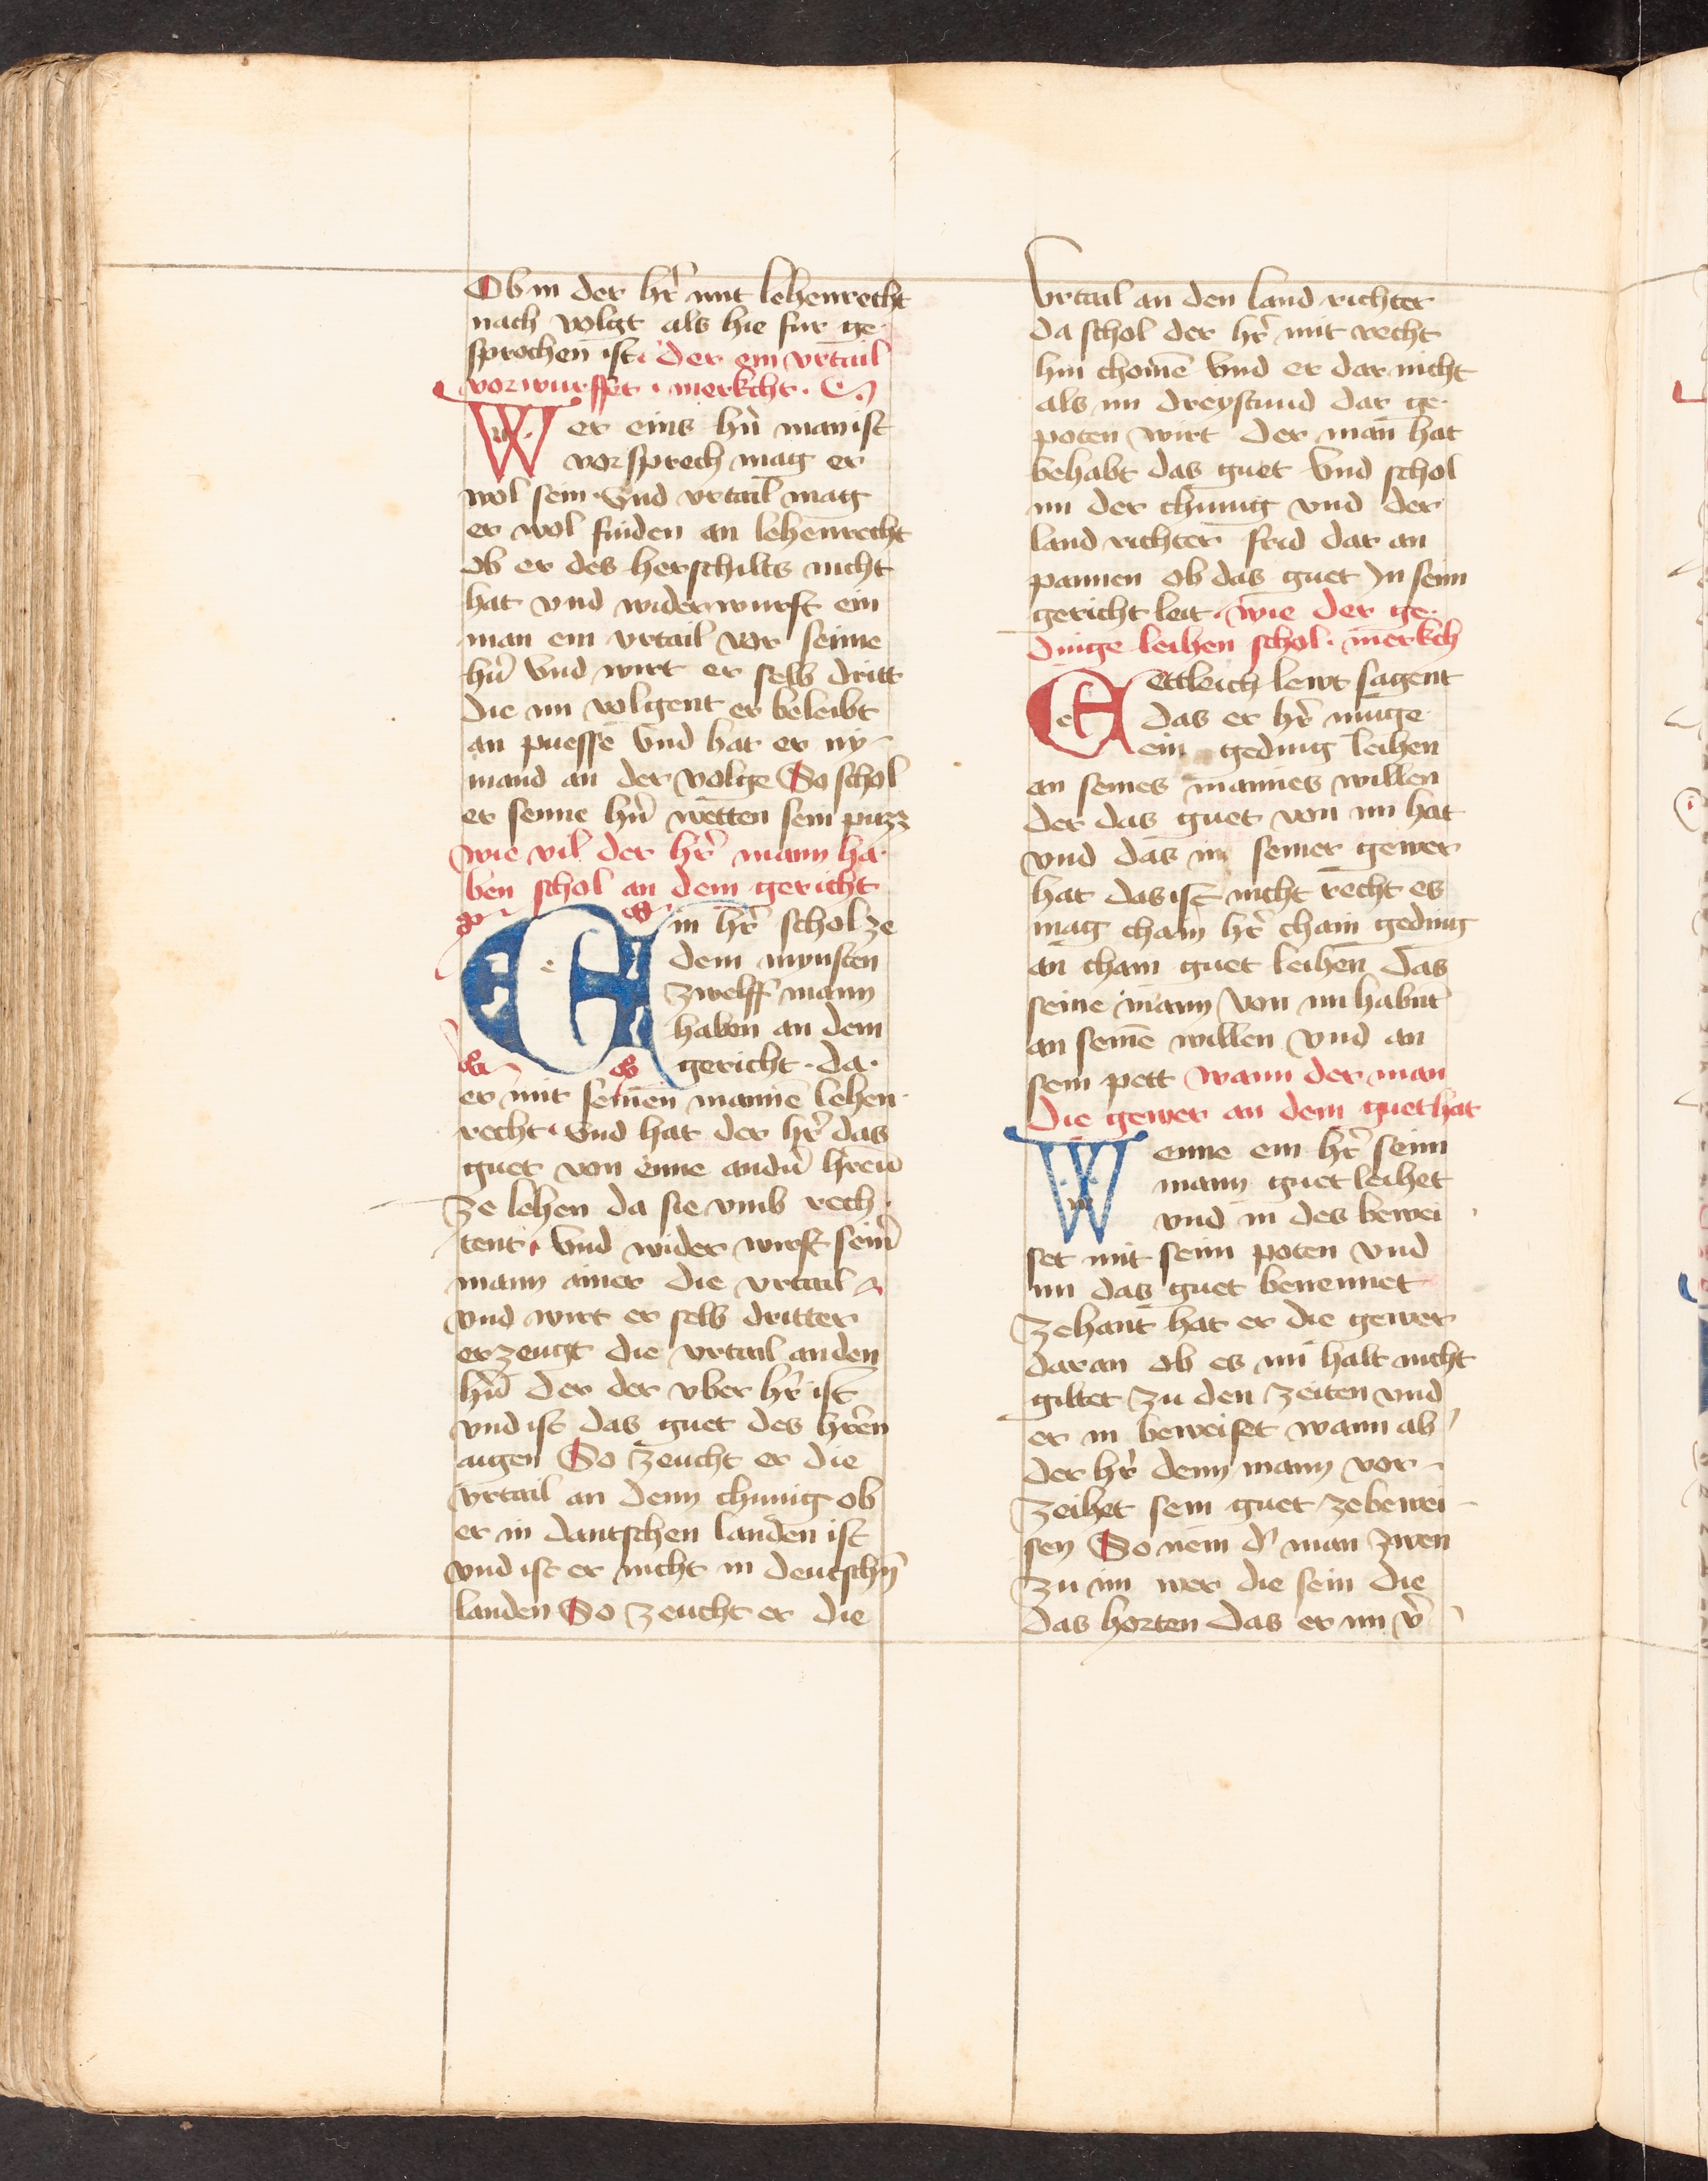 Ob in der hr̄ mit lehenrecht
nach volgt als hie fur ge-
sprochen ist · der ein vrtail
vorwurffet · merkcht ·
Wer eins hr̄n̄ man ist
vorsprech mag er
wol sein · Vnd vrtail mag
er wol finden an lehenrecht
ob er des herschilts nicht
hat vnd widerwurft ein
man ein vrtail vor seime
hr̄n̄ Vnd wirt er selb dritt
die im volgent er beleibt
an puesse Vnd hat er ny-
mand an der volge So schol
er seime hr̄n̄ wetten sein puzz
wie vil der hr̄ mann ha-
ben schol an dem gericht
Ein hr̄ schol ze
dem mynsten
zwelff mann
haben an dem
gericht · da ·
er mit seinen mannē lehen-
recht · Vnd hat der hr̄ das
guet von eime andn̄ hren̄
ze lehen da sie vmb rech-
tent · Vnd wider wirft sein̄
mann ainer die vrtail
vnd wirt er selb dritter
er zeugt die vrtail an den
hn̄ der der vber hr̄ ist
vnd ist das guet des hrēn
aigen So zeucht er die
vrtail an denn chunig ob
er in dautschen landen ist
vnd ist er nicht in deutschn̄
landen So zeucht er die
Vrtail an den land richter
da schol der hr̄ mit recht
hin chomē Vnd er dar nicht
als im dreystund dar ge-
poten wirt der man hat
behabt das guet Vnd schol
im der chunig vnd der
land richter frid dar an
pannen ob das guet In seim
gericht leit · wie der ge-
dinge leihen schol · merkch
Ettleich lewt sagent
das er hr̄ muge
ein geding leihen
an seines mannes willen
der das guet von im hat
vnd das in seiner gewer
hat das ist nicht recht es
mag chain hr̄ chain geding
an chain guet leihen das
seine mann von im habnt
an seinē willen vnd an
sein pett wann der man
die gewer an dem guet hat
Wenne ein hr̄ seim
mann guet leihet
vnd in des bewei
set mit seim poten vnd
im das guet benennet
zehant hat er die gewer
daran ob es im halt nicht
giltet zu den zeiten vnd
er in beweiset wann ab
der hr̄ denn mann vor-
zeihet sein guet ze bewei-
sen So nem d' man zwen
zu im wer die sein die
das horten das er im v̄